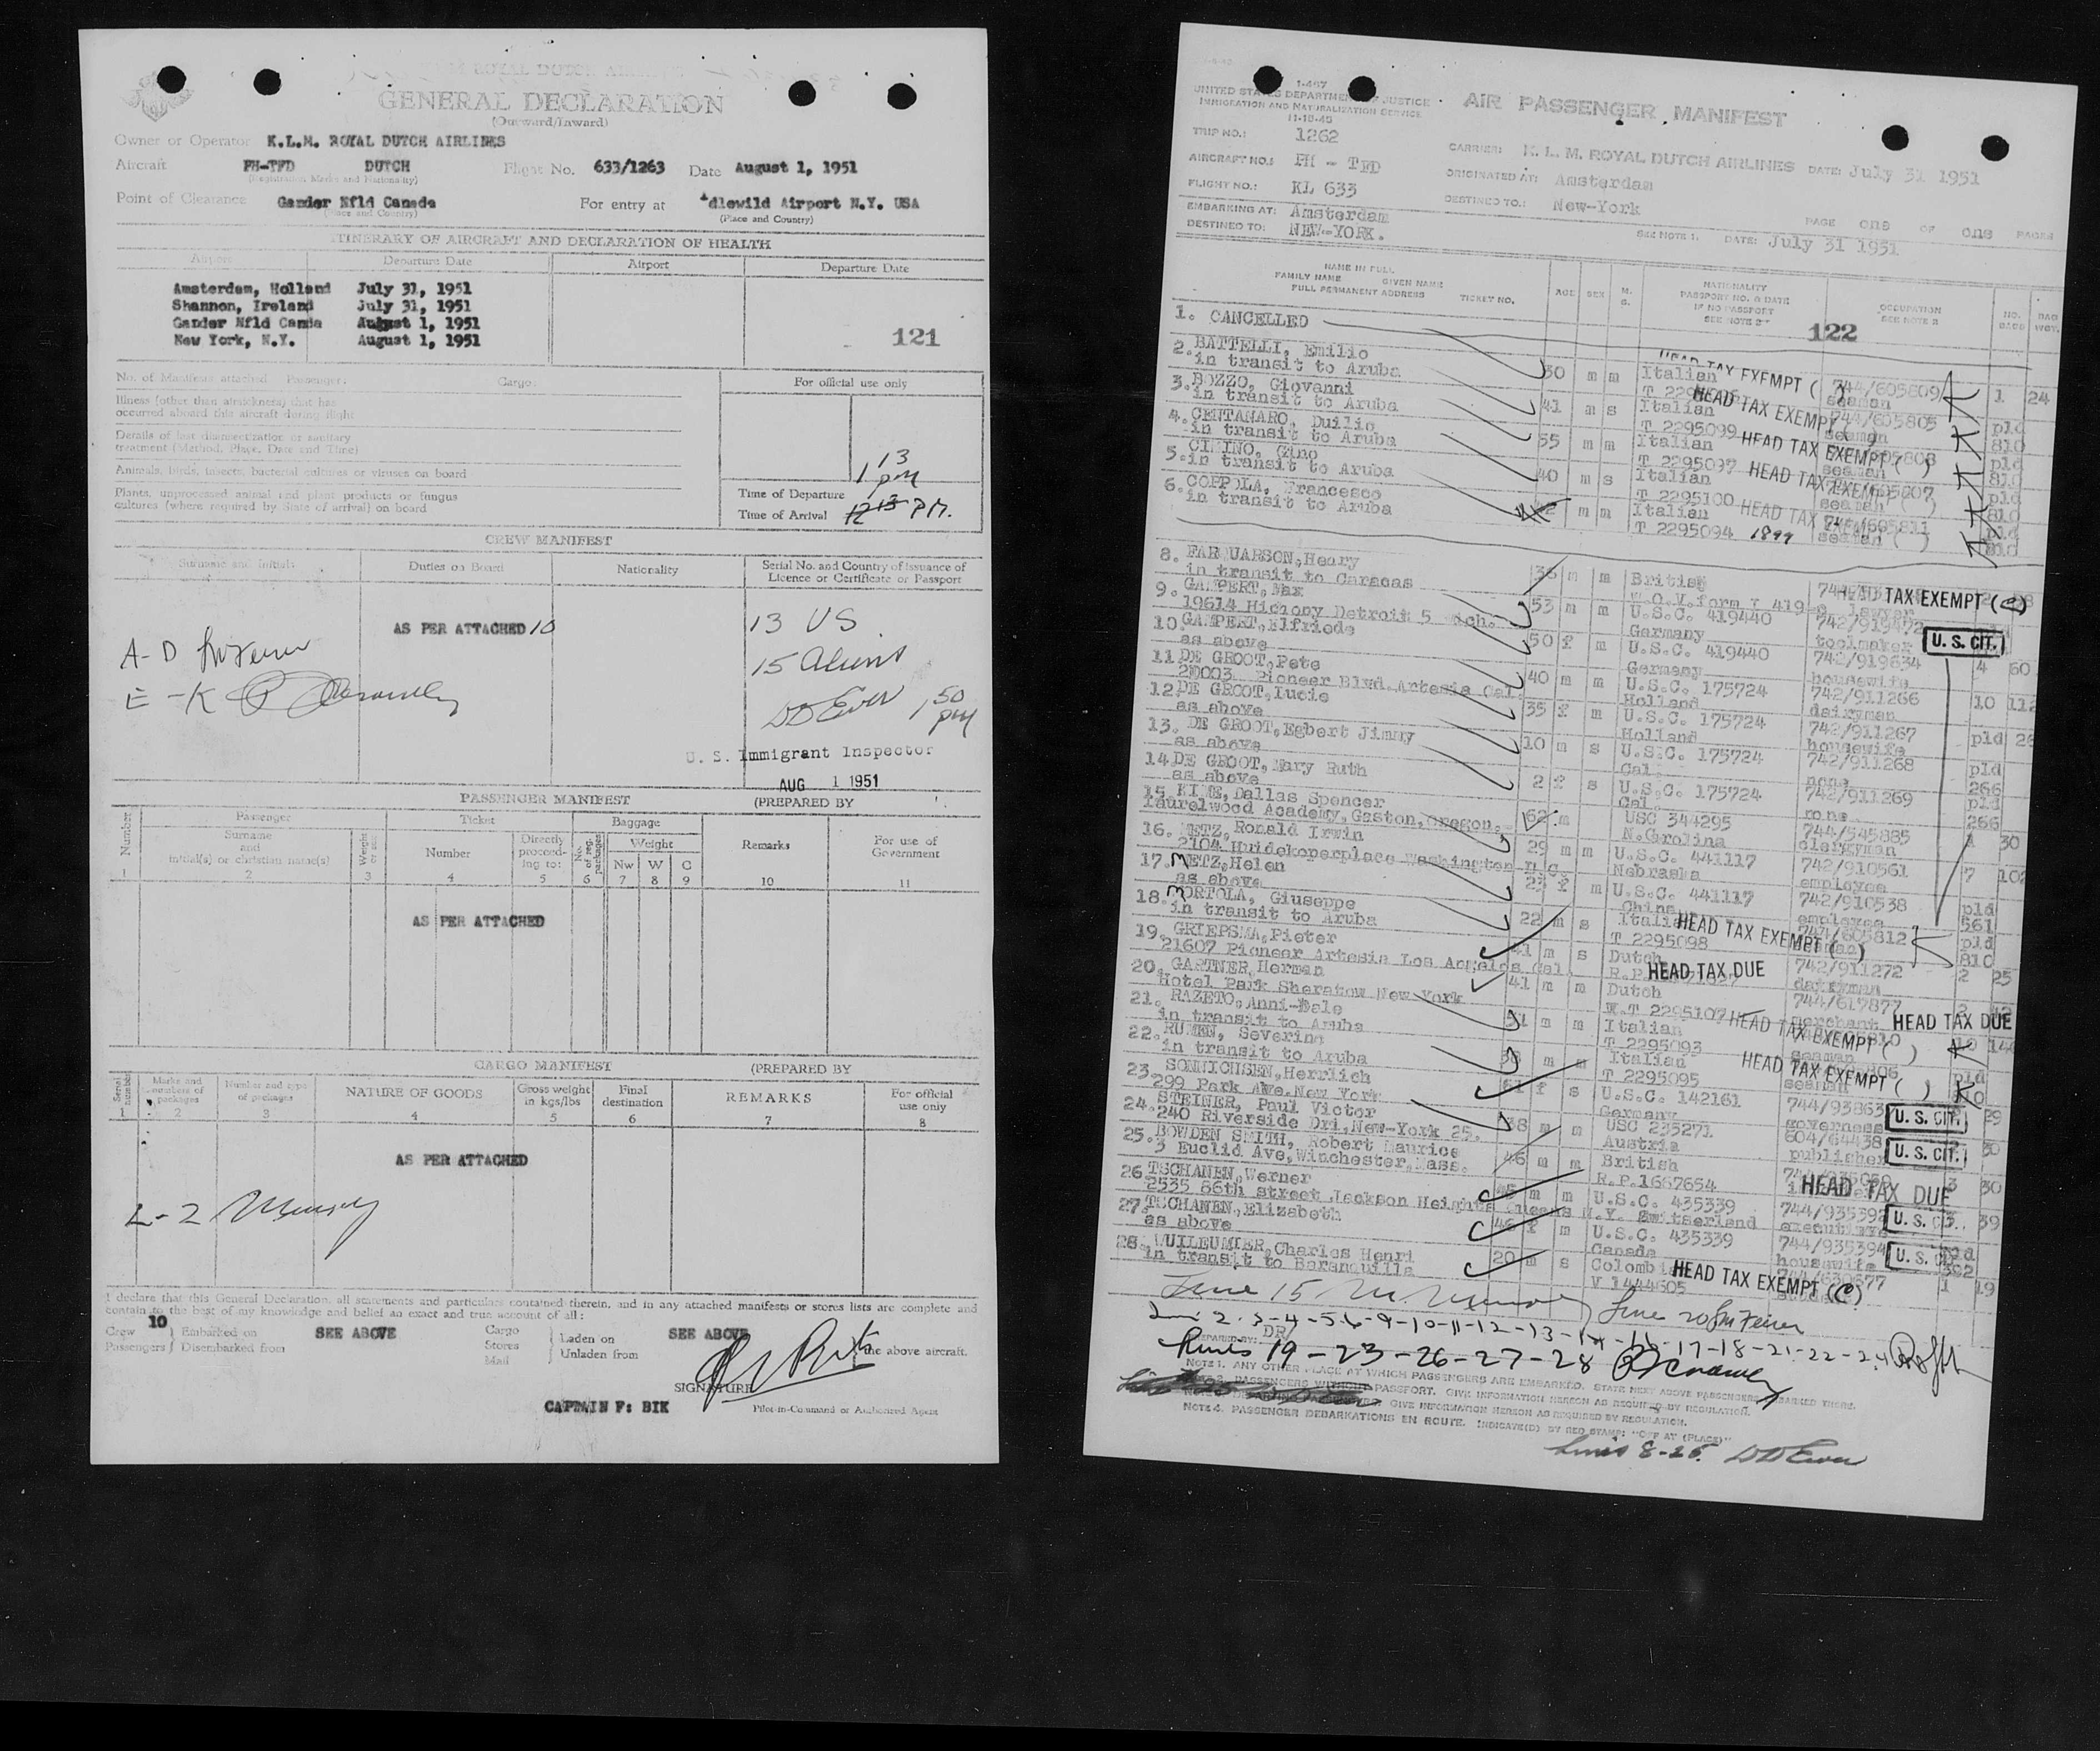 GENERAL DECLARATION
(Outward/Inward)
Owner or Operator K.L.M. ROYAL DUTCH AIRLINES
Aircraft PH-TFD DUTCH Flight No. 633/1263 Date August 1, 1951
(Registration Marks and Nationality)
Point of Clearance Gander Nfld Canada For entry at dlewild Airport N.Y. USA
(Place and Country) (Place and Country)
ITINERARY OF AIRCRAFT AND DECLARATION OF HEALTH
Airport Departure Date Airport Departure Date
Amsterdam, Holland July 31, 1951
Shannon, Ireland July 31, 1951
Gander Nfld Canda August 1, 1951
New York, N.Y. August 1, 1951
121
No. of Manifests attached Passenger: Cargo:
For official use only
Illness (other than airsickness) that has
occurred aboard this aircraft during flight
Details of last disinsectization or sanitary
treatment (Method, Place, Date and Time)
Animals, birds, insects, bacterial cultures or viruses on board
Plants, unprocessed animal and plant products or fungus
cultures (where required by State of arrival) on board
1 13 pm
Time of Departure
Time of Arrival 12 13 P.M.
CREW MANIFEST
Surname and Initials Duties on Board Nationality Serial No. and Country of Issuance of
Licence or Certificate or Passport
AS PER ATTACHED 10
13 US
A-D
15 Aliens
E-K
1 50 pm
U. S. Immigrant Inspector
AUG 1 1951
PASSENGER MANIFEST (PREPARED BY
Number Passenger Ticket Baggage Remarks For use of
Government
Surname
and
initial(s) or christian name(s)
Number Directly
proceed-
ing to:
Weight
Nw W C
1 2 3 4 5 6 7 8 9 10 11
AS PER ATTACHED
CARGO MANIFEST (PREPARED BY
Serial number Marks and
numbers of
packages
Number and type
of packages
NATURE OF GOODS Gross weight
in kgs/lbs
Final
destination
REMARKS For official
use only
1 2 3 4 5 6 7 8
AS PER ATTACHED
L-Z
I declare that this General Declaration, all statements and particulars contained therein, and in any attached manifests or stores lists are complete and
contain to the best of my knowledge and belief an exact and true account of all:
10
Crew
Passengers
Embarked on
Disembarked from
SEE ABOVE
Cargo
Stores
Mail
Laden on
Unladen from
SEE ABOVE
the above aircraft.
SIGNATURE
CAPTAIN F: BIK Pilot-in-Command or Authorized Agent
I-447
UNITED STATES DEPARTMENT OF JUSTICE
IMMIGRATION AND NATURALIZATION SERVICE
11-15-45
AIR PASSENGER MANIFEST
TRIP NO.: 1262
AIRCRAFT NO.: PH - TFD
CARRIER: K. L. M. ROYAL DUTCH AIRLINES DATE: July 31 1951
FLIGHT NO.: KL 633 ORIGINATED AT: Amsterdam
EMBARKING AT: Amsterdam DESTINED TO.: New-York
DESTINED TO: NEW-YORK.
PAGE one OF one PAGES
SEE NOTE 1. DATE: July 31 1951
NAME IN FULL
FAMILY NAME GIVEN NAME
FULL PERMANENT ADDRESS TICKET NO. AGE SEX M. S.
NATIONALITY
PASSPORT NO. & DATE
IF NO PASSPORT
SEE NOTE 2
OCCUPATION
SEE NOTE 3
NO. BAGG BAG WGT.
122
1. CANCELLED
2. BATTELLI, Emilio 30 m m Italian 744/605809 1 24
in transit to Aruba seaman
HEAD TAX EXEMPT ( )
3. BOZZO, Giovanni 41 m s Italian 744/605805 pld
in transit to Aruba T 2295099 seaman 810
HEAD TAX EXEMPT ( )
4. CENTANARO, Duilio 55 m m Italian pld
in transit to Aruba T 2295097 seaman 810
HEAD TAX EXEMPT ( )
5. CIMINO, Gino 40 m s Italian pld
in transit to Aruba T 2295100 seaman 810
HEAD TAX EXEMPT ( )
6. COPPOLA, Francesco m m Italian 744/605811 pld
in transit to Aruba T 2295094 1899 seaman 810
HEAD TAX EXEMPT ( )
8. FARQUARSON, Henry 38 m m British
in transit to Caracas lawyer
HEAD TAX EXEMPT (C)
9. GAMPERT, Max 53 m m U.S.C. 419440
19614 Hickony Detroit 5 Mich. Germany toolmaker
U. S. CIT.
10. GAMPERT, Elfriede 50 f m U.S.C. 419440 742/919634 4 60
as above Germany housewife
11 DE GROOT, Pete 40 m m U.S.C. 175724 742/911266 10 112
20003 Pioneer Blvd. Artesia Cal. Holland dairyman
12 DE GROOT, Lucie 35 f m U.S.C. 175724 742/911267 pld
as above Holland housewife
13. DE GROOT, Egbert Jimmy 10 m s U.S.C. 175724 742/911268 pld
as above Cal. none 266
14 DE GROOT, Mary Ruth 2 f s U.S.C. 175724 742/911269 pld
as above Cal. none 266
15. KIME, Dallas Spencer 62 m USC 344295 744/545885 1 30
Laurelwood Academy, Gaston, Oregon. N.Carolina clergyman
16. METZ, Ronald Irwin 29 m m U.S.C. 441117 742/910561 7 102
2104 Huidekoperplace Washington D.C. Nebraska employee
17. METZ, Helen f m U.S.C. 441117 742/910538 pld
as above China employee 561
18. MORTOLA, Giuseppe 22 m s Italian 744/605812 pld
in transit to Aruba T 2295098 seaman 810
HEAD TAX EXEMPT ( )
19. GRIEPSMA, Pieter 41 m s Dutch 742/911272 2 25
21607 Pioneer Artesia Los Angelos Cal. dairyman
HEAD TAX DUE
20. GARTNER, Herman 41 m m Dutch 744/617877
Hotel Park Sheratow New-York merchant
HEAD TAX DUE
21. RAZETO, Anni-Bale 51 m m Italian
in transit to Aruba T 2295093 seaman
HEAD TAX EXEMPT ( )
22. RUMEN, Severino m m Italian pld
in transit to Aruba T 2295095 seaman 810
HEAD TAX EXEMPT ( )
23. SONNICHSEN, Herrlich f s U.S.C. 142161 29
299 Park Ave. New York Germany governess
U. S. CIT.
24. STEINER, Paul Victor 38 m m USC 235271 604/64438 30
240 Riverside Dri, New-York 25. Austria publisher
U. S. CIT.
25. BOWDEN SMITH, Robert Maurice 46 m m British 3 30
3 Euclid Ave, Winchester, Mass. R.P.1667654
HEAD TAX DUE
26. TSCHANEN, Werner m m U.S.C. 435339 744/935392 39
2535 86th street Jackson Heights N.Y. Switserland executive
27. TSCHANEN, Elizabeth 46 f m U.S.C. 435339 744/935394 pld
as above Canada housewife 392
28. WUILEUMIER, Charles Henri 20 m s Colombia 1 19
in transit to Baranquilla V 1444605
HEAD TAX EXEMPT (C)
Line 15 Line 20
2-3-4-5-6-9-10-11-12-13-14-16-17-18-21-22-24
PREPARED BY: DR/
Lines 19-23-26-27-28
NOTE 1. ANY OTHER PLACE AT WHICH PASSENGERS ARE EMBARKED, STATE NEXT ABOVE PASSENGERS EMBARKED THERE.
NOTE 2. PASSENGERS WITHOUT PASSPORT. GIVE INFORMATION HEREON AS REQUIRED BY REGULATION.
GIVE INFORMATION HEREON AS REQUIRED BY REGULATION.
NOTE 4. PASSENGER DEBARKATIONS EN ROUTE. INDICATE(D) BY RED STAMP: "OFF AT (PLACE)"
Lines 8-25.